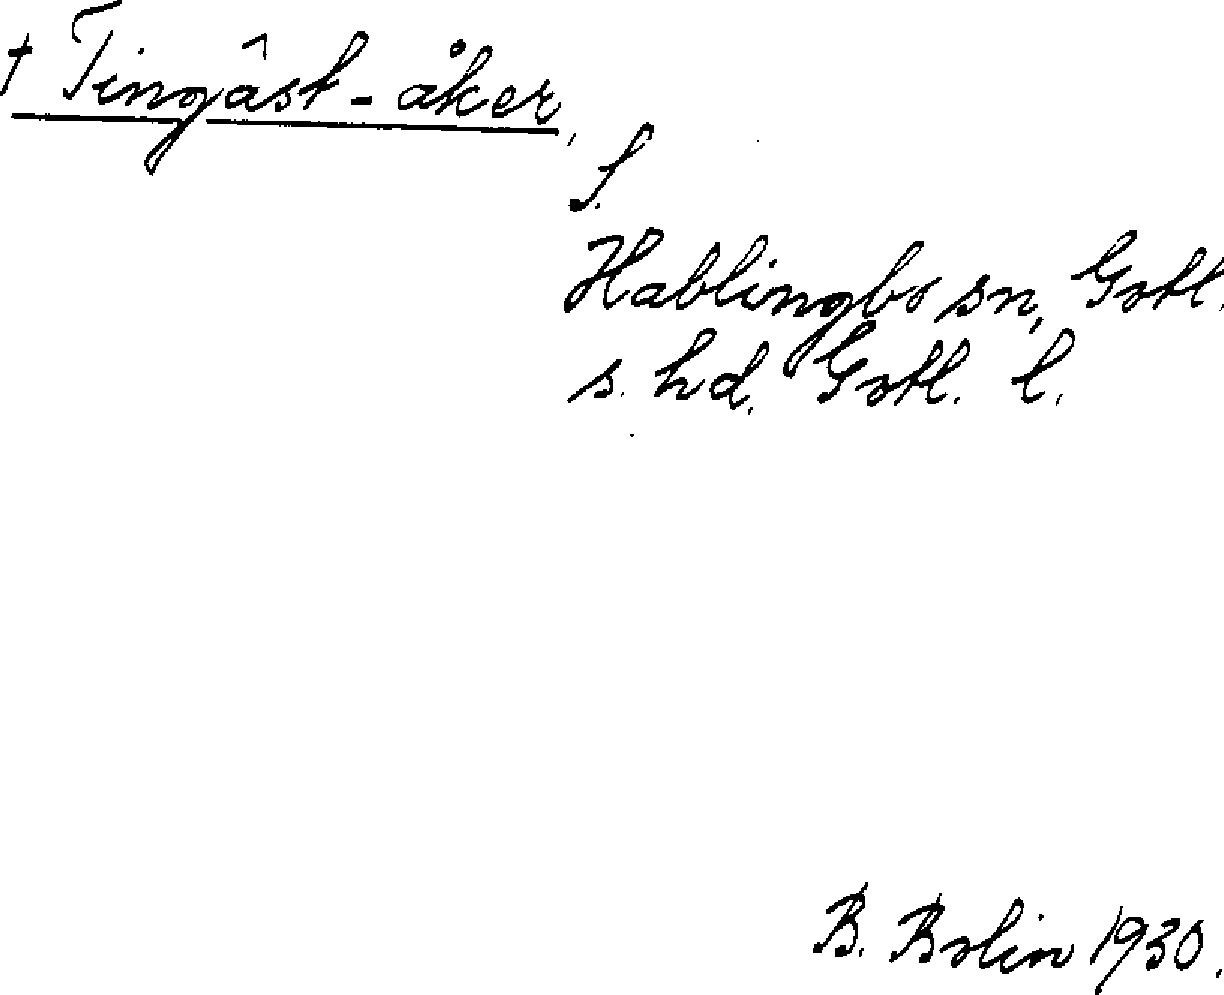 † Tingâst-åker,
f.
Hablingbo sn, Gotl.
s. hd. Gotl. l.
B. Bolin 1930.